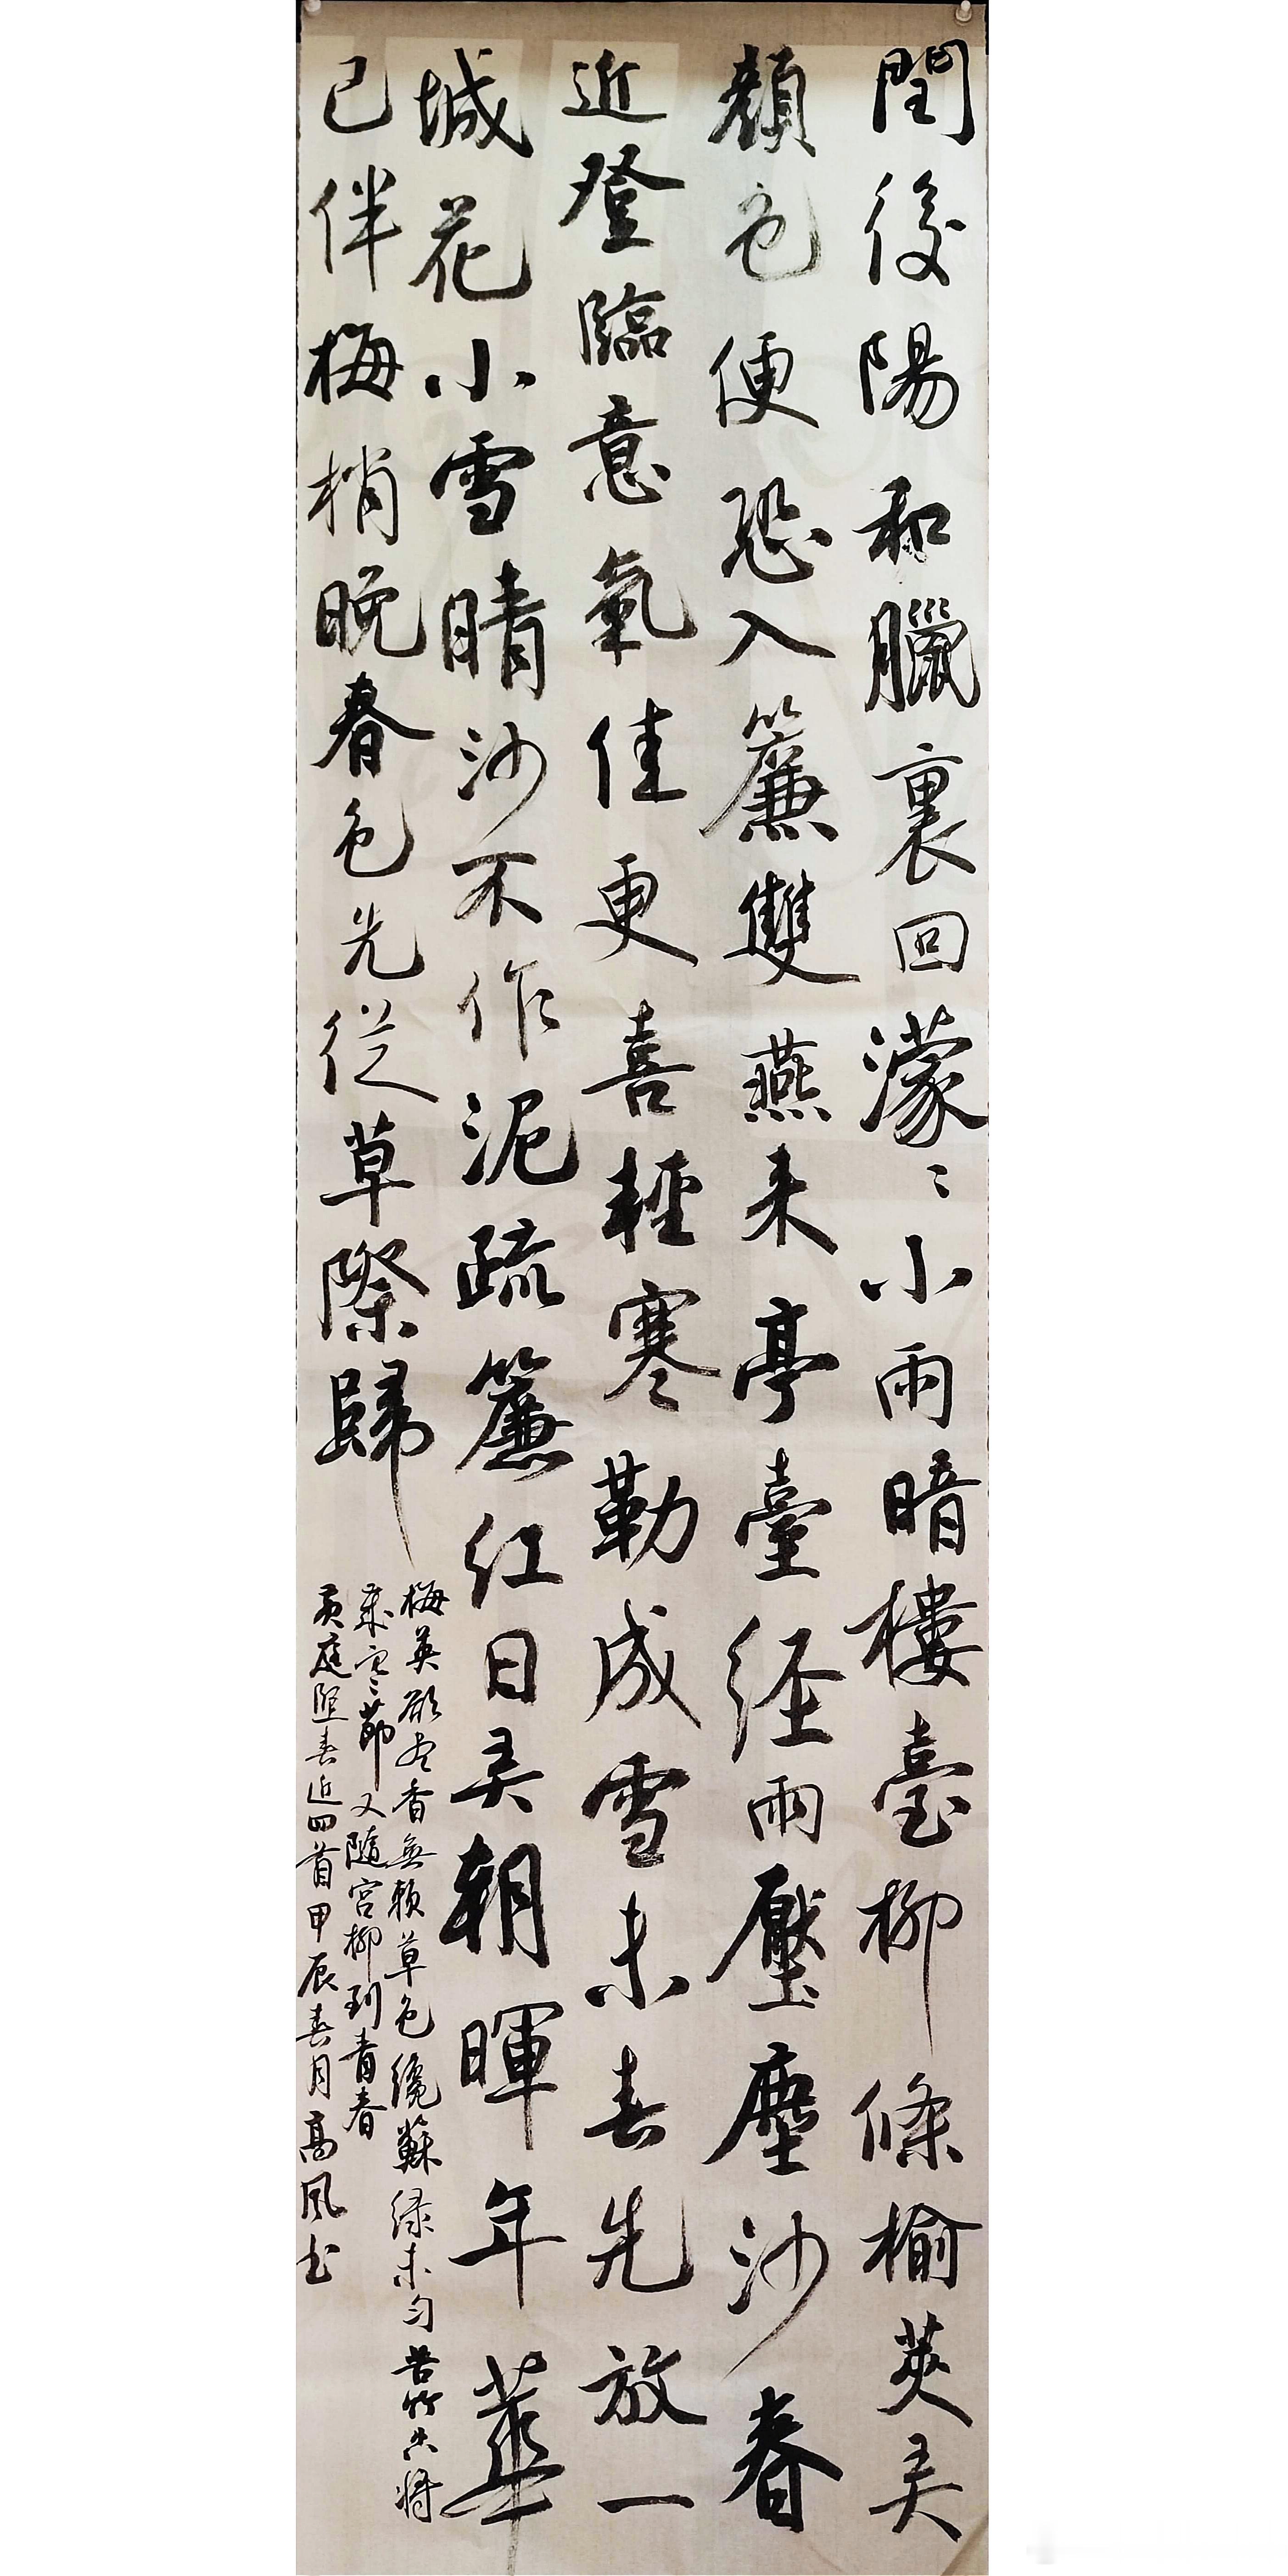 閏後陽和臘裏回濛〻小雨暗樓臺柳條榆莢弄
顏色便恐入簾雙燕来亭臺經雨壓塵沙春
近登臨意氣佳更喜輕寒勒成雪未春先放一
城花小雪晴沙不作泥疏簾紅日弄朝暉年華
已伴梅梢晚春色先從草際歸
梅英欲盡香無賴草色纔蘇綠未勻苦竹空將
歲寒節又隨官柳到青春
黃庭堅春近四首甲辰春月高風书